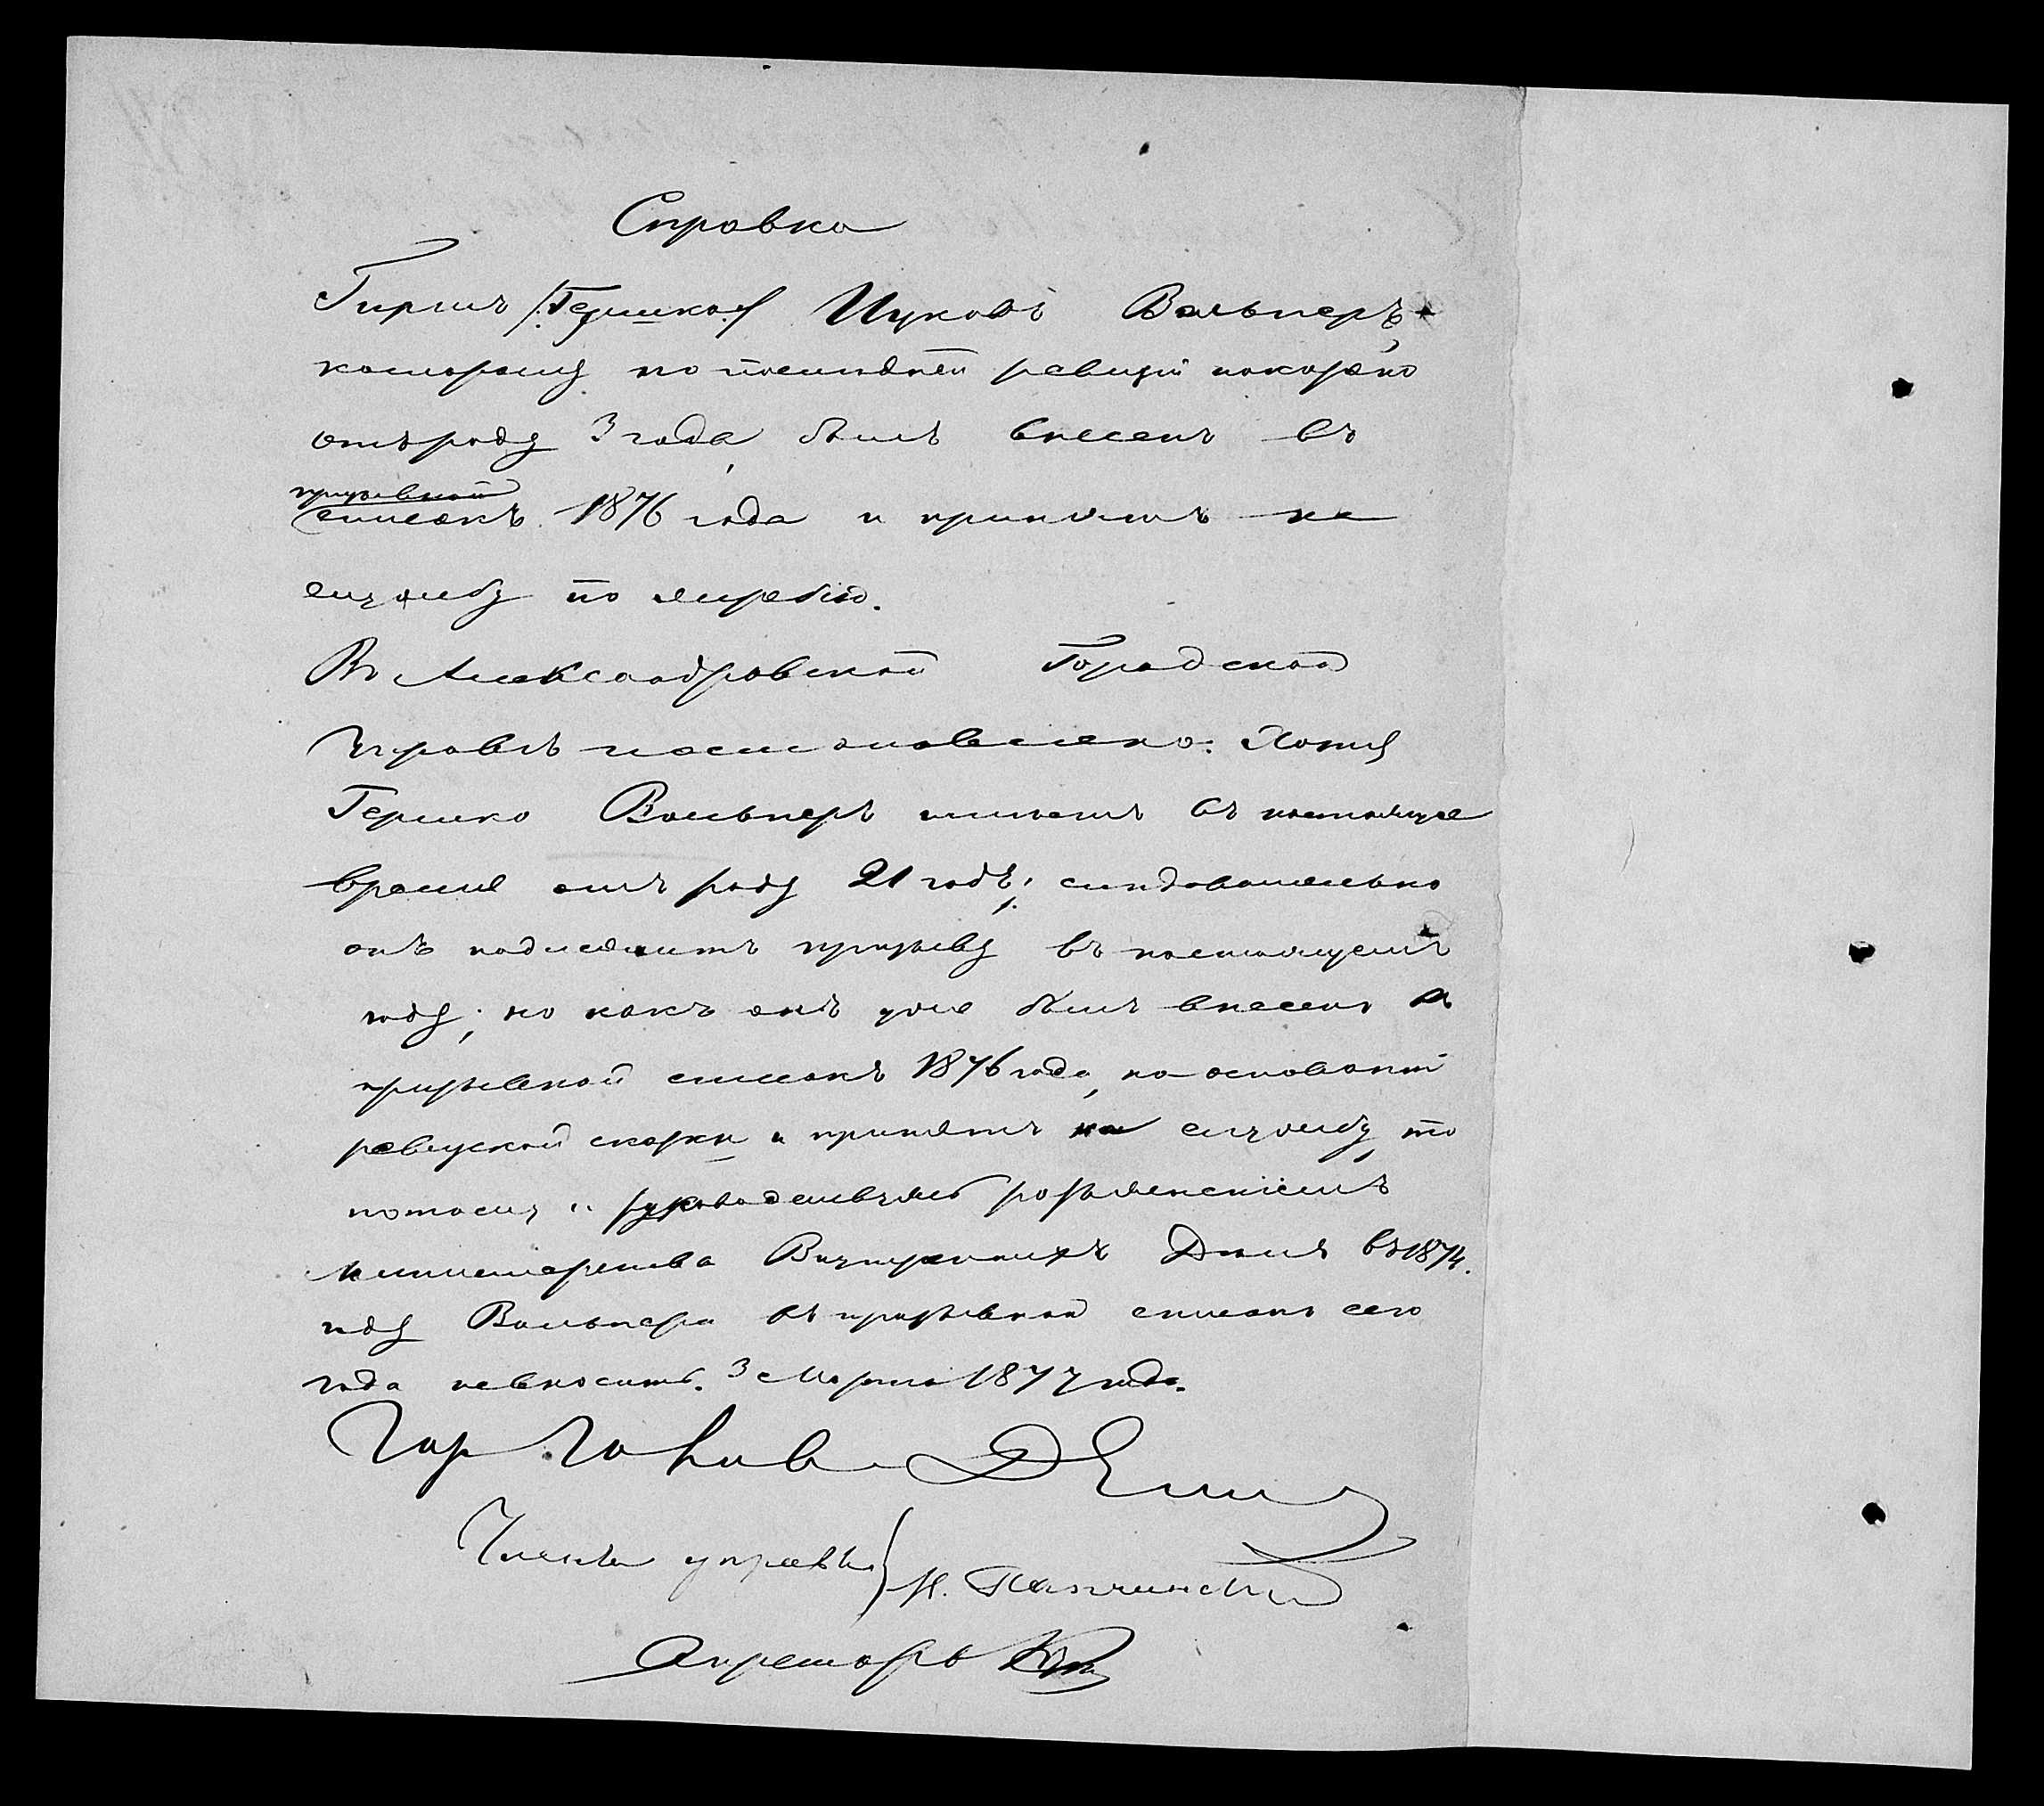 Справка
Гиршъ /:Гершко:/ Ицковъ Вальперъ,
которому по последней ревизіи показано
отъ роду 3 года, былъ внесенъ въ
призывной
списокъ 1876 года и принятъ на
службу по жребію.
Въ Александровской Городской
Управѣ постановлено: Хотя
Гершко Вальперъ имѣетъ въ настоящее
время отъ роду 21 годъ; слѣдовательно
онъ подлежитъ призыву въ настоящемъ
году; но какъ онъ уже былъ внесенъ въ
призывной списокъ 1876 года, на основаніи
ревизской сказки и принятъ на службу, то
потому и руководствуясь разъясненіемъ
Министерства Внутреннихъ Дѣлъ въ 1874.
году Вальпера въ призывной списокъ сего
года невносить. 3 Марта 1877 года.
Гор Голова
Члены управы
Н.
Секретарь